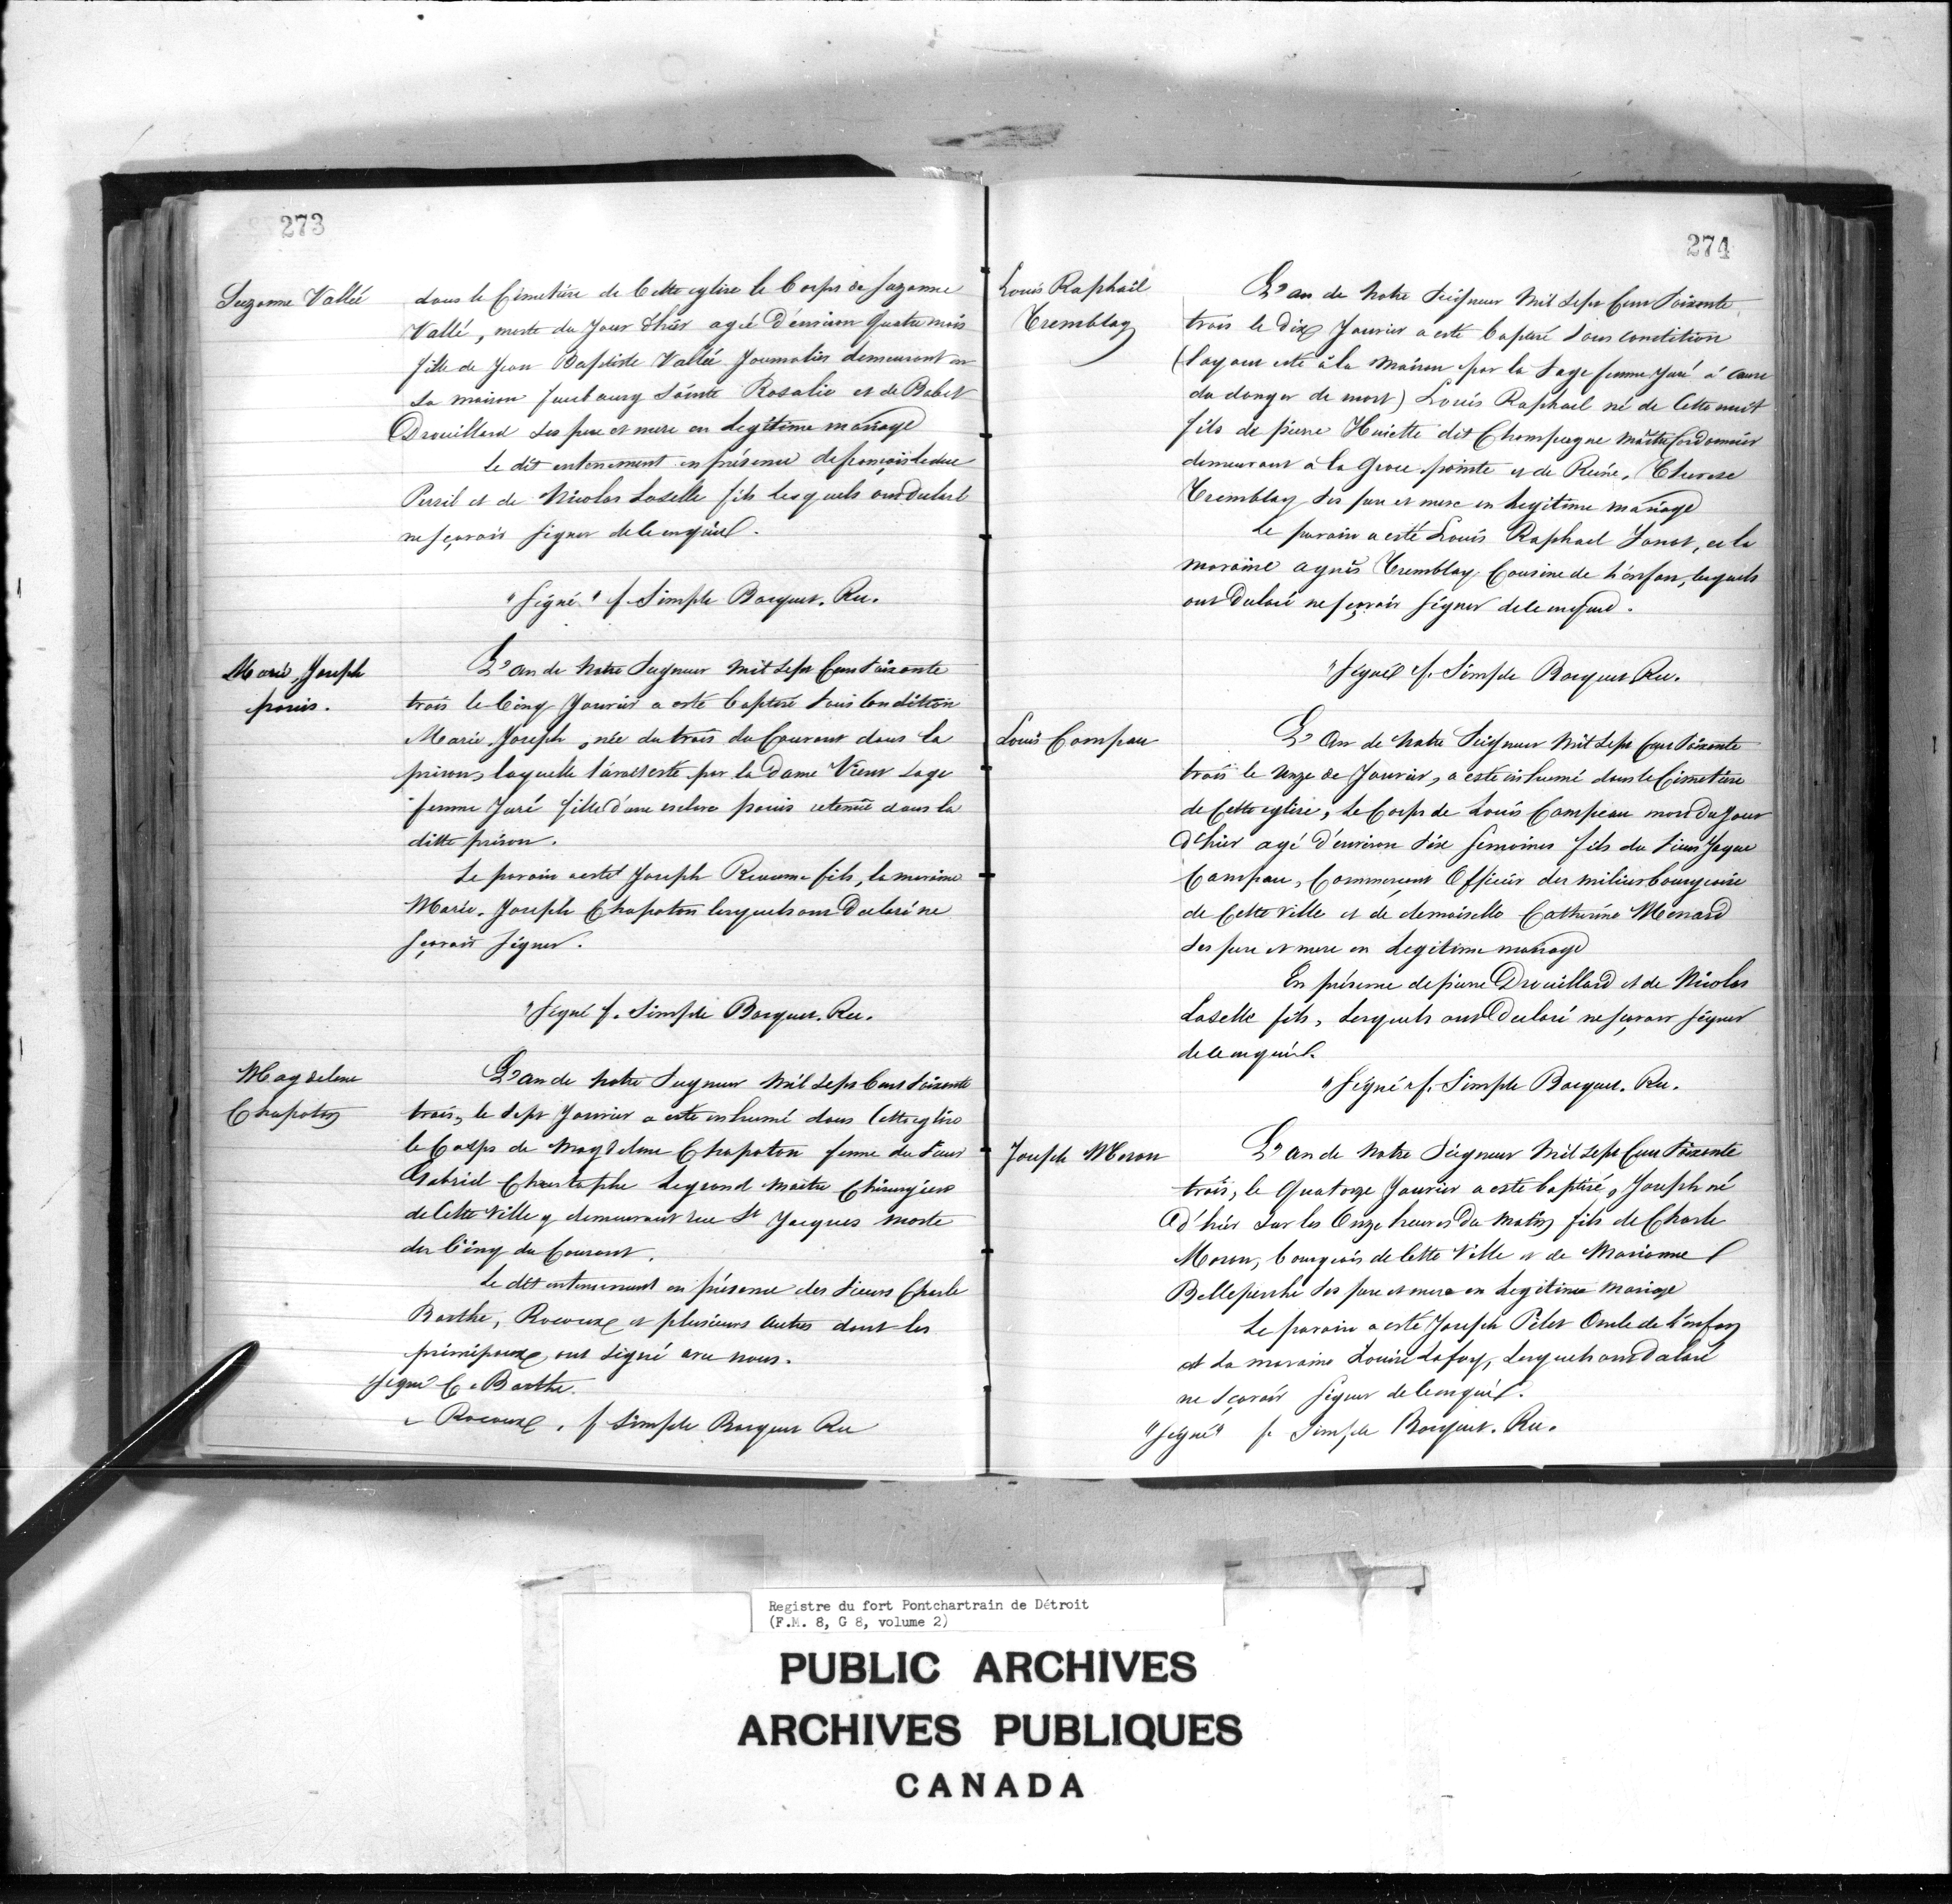 273
Suzanne Vallée
dans le Cimetière de Cette eglise le Corps de Suzanne
Vallé, morte du Jour d'hier agée D'environ Quatre mois
fille de Jean Baptiste Vallée Journalier demeurant en
sa maison fauxbourg Sainte Rosalie et de Babet
Drouillard ses pere et mere en Legitime mariage
Le dit enterrement en présence de françois Leduc
Persil et de Nicolas Laselle fils Lesquels ont Declaré
ne sçavoir signer de ce enquied.
"Signé" f. Simple Bocquet. Rec.
Marie, Joseph
panis.
L'an de Notre Seigneur Mil Sept Cent Soixante
trois le Cinq Janvier a esté baptisé sous Condition
Marie Joseph, née du trois du Courant dans la
prison, laquelle l'avait esté par la Dame Vieur Sage
femme Juré fille d'une esclave panis retenue dans la
ditte prison.
Le parain a esté Joseph Reaume fils, la maraine
Marie. Joseph Chapoton lesquels ont Declaré ne
sçavoir signer.
"Signé f. Simple Bocquet. Rec.
Magdelene
Chapoton
L'an de Notre Seigneur Mil Sept Cent Soixante
trois, le Sept Janvier a esté inhumé dans Cette eglise
le Corps de Magdelene Chapoton femme du Sieur
Gabriel Christophe Legrand Maitre Chirurgien
de Cette Ville y demeurant rue St Jacques morte
du Cinq du Courant.
Le dit enterrement en présence des Sieurs Charle
Barthe, Rocoux et plusieurs Autres dont les
principaux ont Signé avec nous.
Signé C. Barthe.
" Rocoux, f Simple Bocquet Rec
274
Louis Raphaël
Tremblay
L'an de Notre Seigneur Mil Sept Cent Soixante
trois le Dix Janvier a esté baptisé sous condition
(l'ayant esté à la Maison par la Sage femme Juré à Cause
du danger de mort) Louis Raphael né de Cette nuit
fils de pierre Huiette dit Champagne Maitre Cordonnier
demeurant à la Grosse pointe et de Reine, Therese
Tremblay Ses pere et mere en Legitime mariage
Le parain a esté Louis Raphael Janot, et la
maraine agnès Tremblay Cousine de l'enfan, lesquels
ont Declaré ne sçavoir signer de ce enquied.
"Signé f. Simple Bocquet Rec.
Louis Campau
L'An de Notre Seigneur Mil Sept Cent Soixante
trois le unze de Janvier, a esté inhumé dans le Cimetière
de Cette eglise, Le Corps de Louis Campeau mort du Jour
D'hier agé d'environ Six Semaines fils du Sieur Jaque
Campau, Commercant Officier des milices bourgeoise
de Cette Ville et de demoiselle Catherine Menard
Ses pere et mere en Legitime mariage
En présence de pierre Drouillard et de Nicolas
Laselle fils, Lesquels ont Declaré ne sçavoir signer
de ce enquied.
"Signé" f. Simple Bocquet. Rec.
Joseph Moran
L'an de Notre Seigneur Mil Sept Cent Soixante
trois, le Quatorze Janvier a esté baptisé, Joseph né
d'hier sur les Onze heures du Matin fils de Charle
Moran, bourgeois de Cette Ville et de Marianne
Belleperche Ses pere et mere en Legitime Mariage
Le parain a esté Joseph Pilet Oncle de l'enfan
et La maraine Louise Lafoy, Lesquels ont Declaré
ne Sçavoir signer de ce enquied.
"Signé" f. Simple Bocquet. Rec.
Registre du fort Pontchartrain de Détroit
(F.M. 8, G 8, volume 2)
PUBLIC ARCHIVES
ARCHIVES PUBLIQUES
CANADA